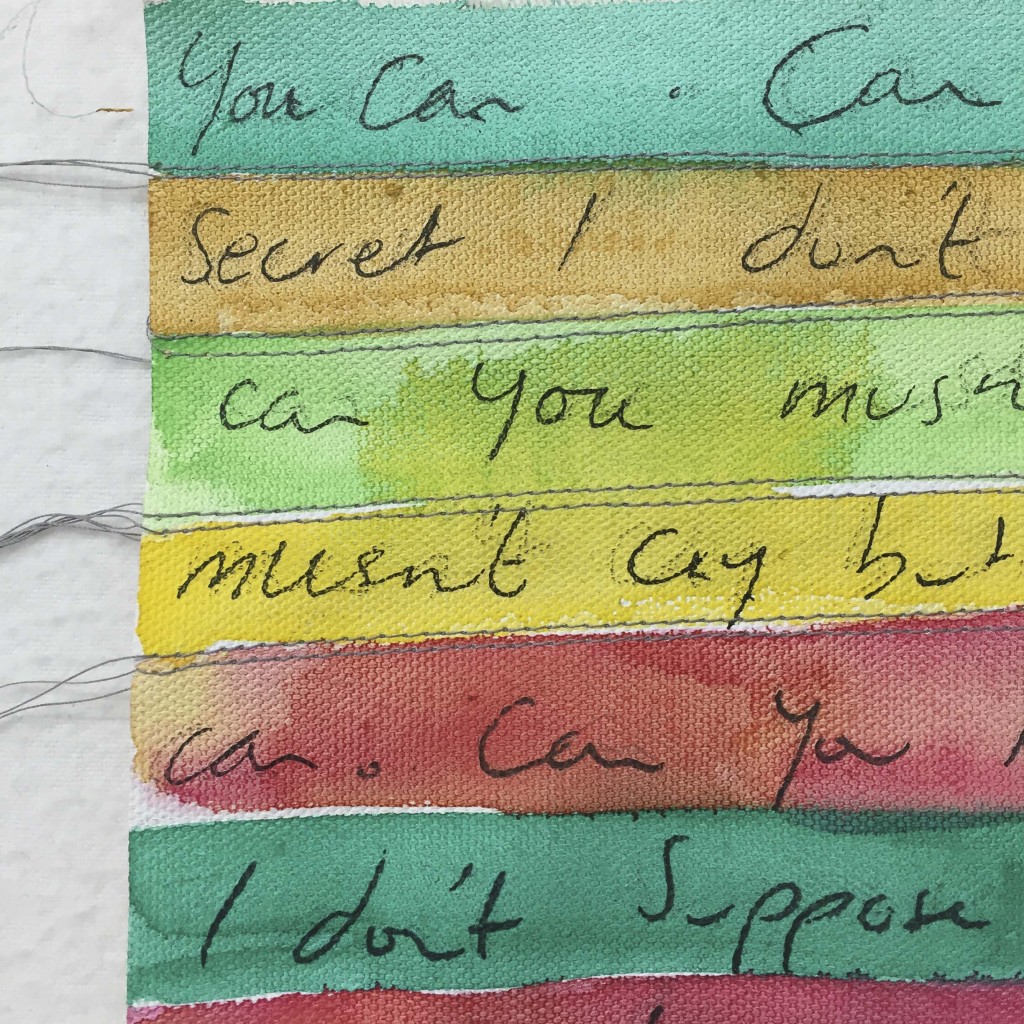 You Can . Can
Secret I don't
can you musn
musn't cry but
can. Can You
I don't Suppose